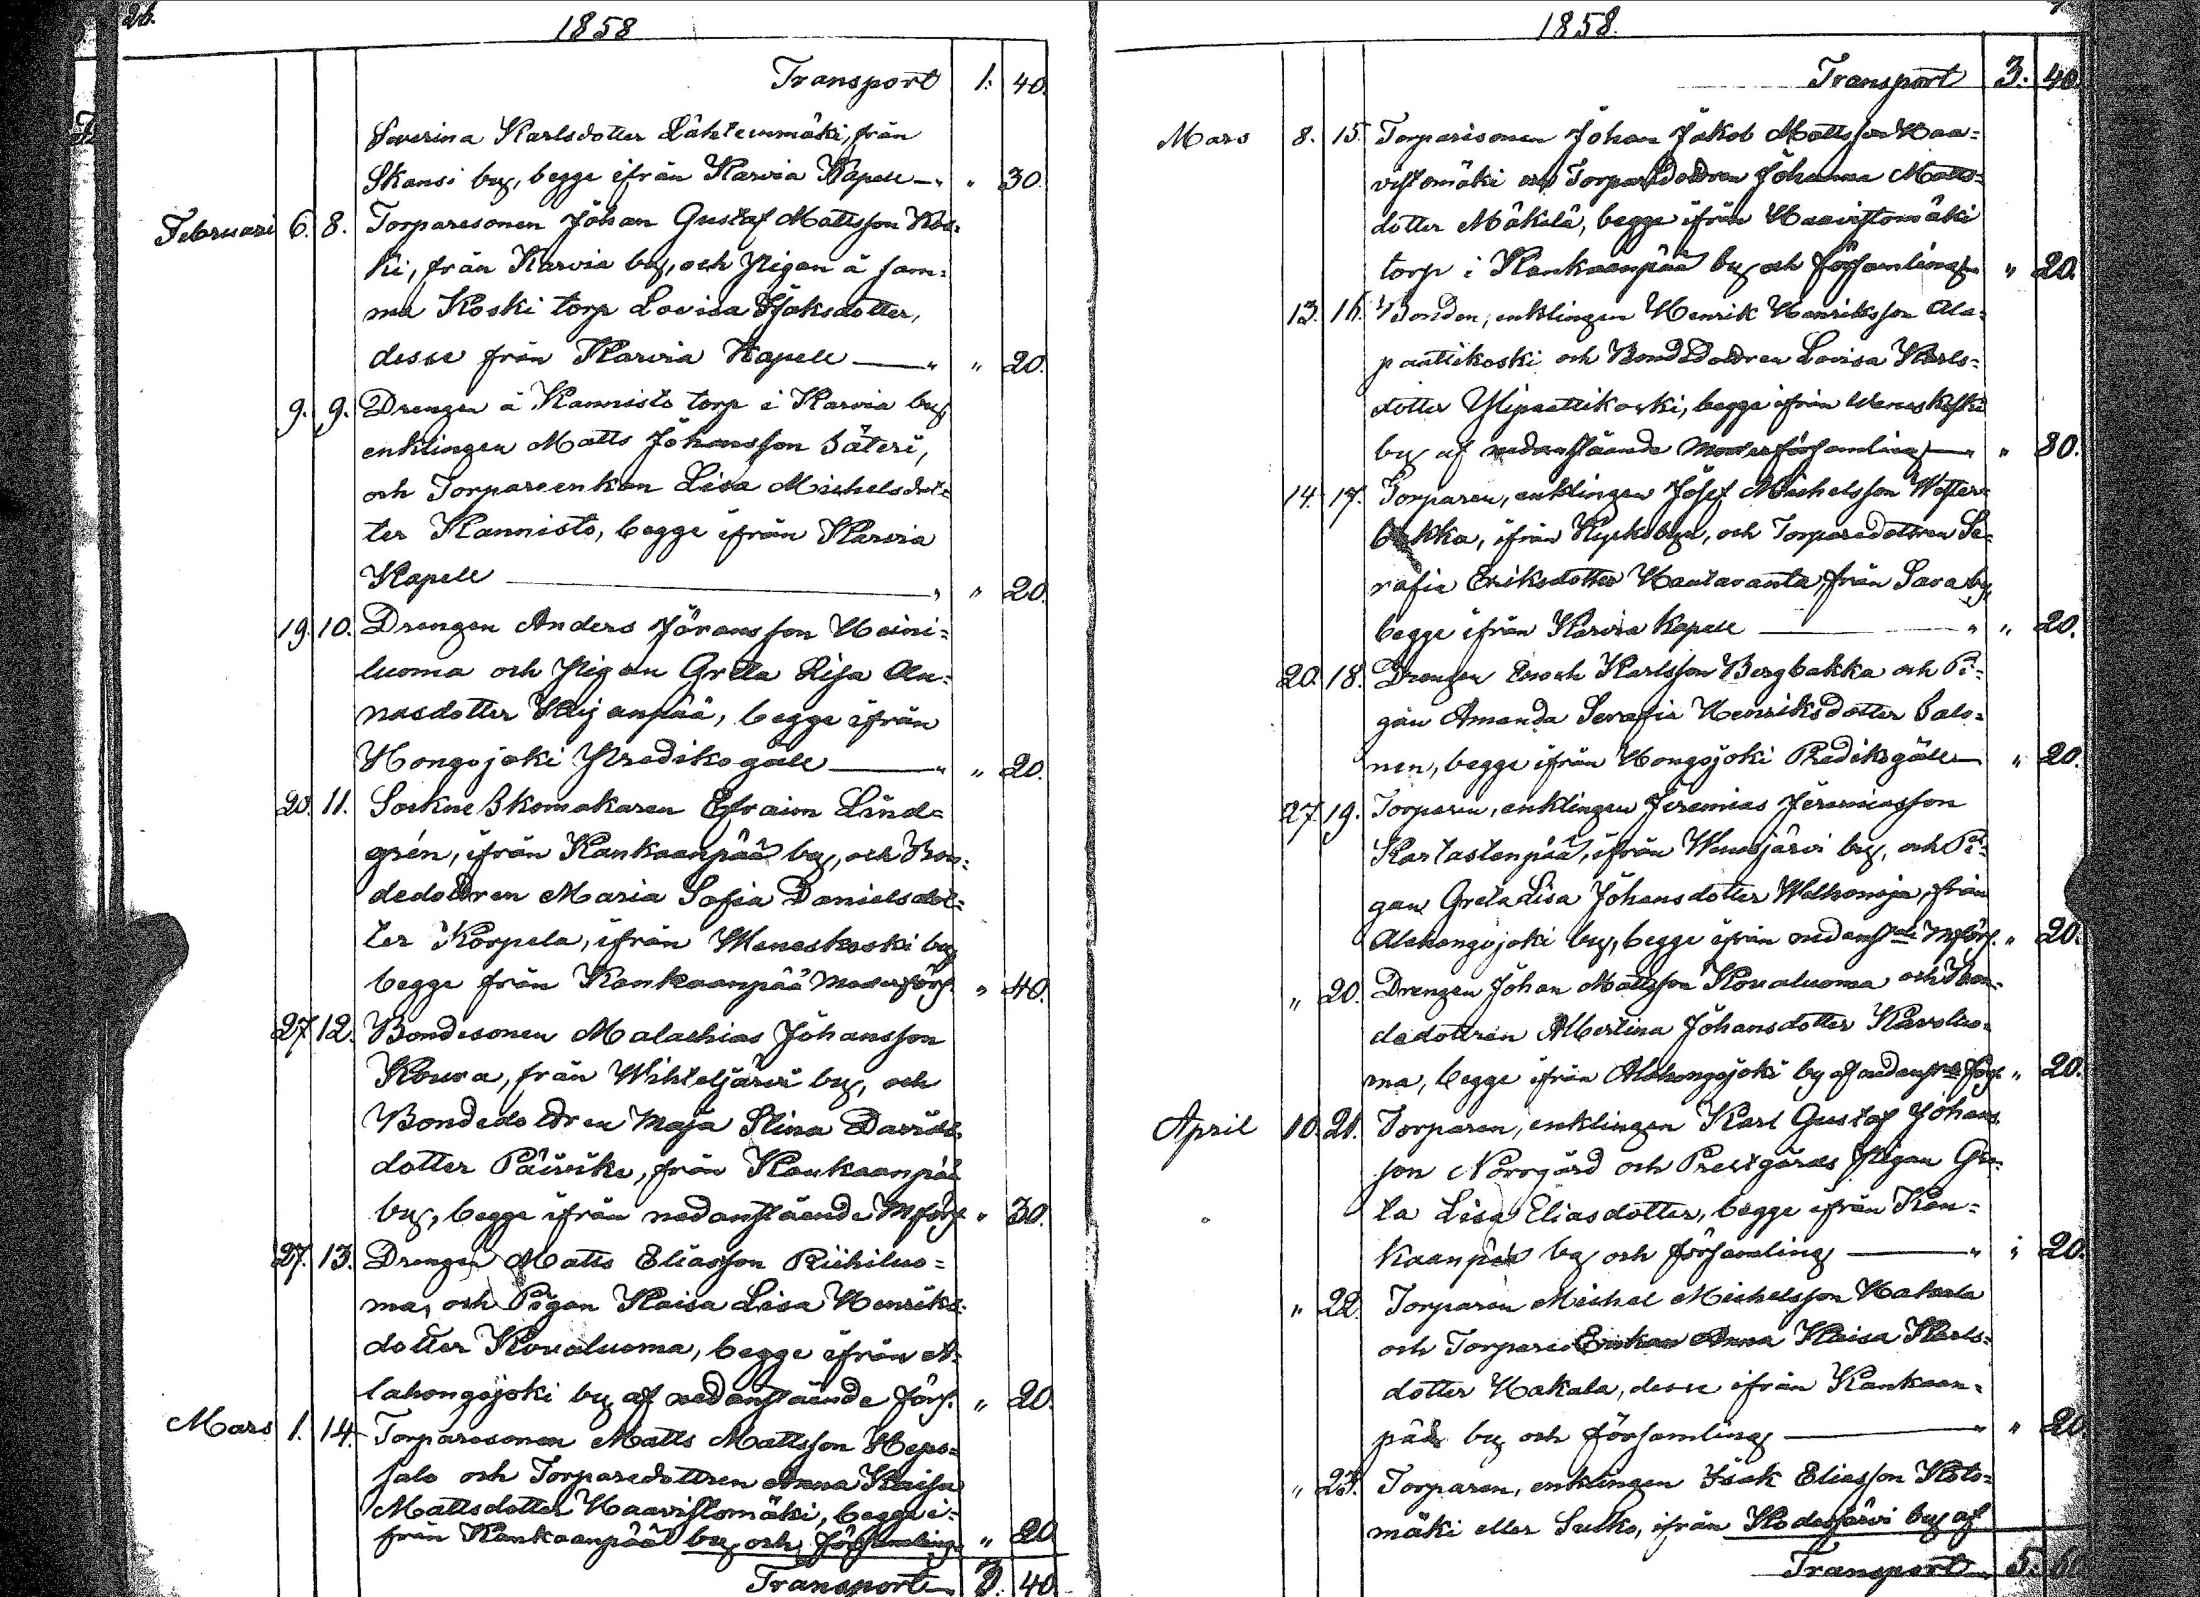 26.
1858
Transport 1. 40.
Severina Karlsdotter Lähteenmäki, från
Skansi by, begge ifrån Karvia Kapell — " 30
Februari 6. 8. Torparesonen Johan Gustaf Mattsson Kos-
ki, från Karvia by, och Pigan å sam-
ma Koski torp Lovisa Isaksdotter,
desse från Karvia Kapell — " 20.
9. 9. Drengen å Kannisto torp i Karvia by
enklingen Matts Johansson Säteri,
och Torpareenkan Lisa Michelsdot-
ter Kannisto, begge ifrån Karvia
Kapell — " 20.
19. 10. Drengen Anders Göransson Heini-
luoma och Pigan Greta Lisa An-
nasdotter Keijanpää, begge ifrån
Hongojoki Predikogäll — " 20.
20. 11. Sockne Skomakaren Efraim Lind-
grén, ifrån Kankaanpää by, och Bon-
dedottren Maria Sofia Danielsdot-
ter Korpela, ifrån Weneskoski by
begge från Kankaanpää Moderförs. " 40.
27. 12. Bondesonen Malachias Johansson
Koura, från Wihteljärvi by, och
Bondedottren Maja Stina Davids-
dotter Päivike, från Kankaanpää
by, begge ifrån nedanstäende Mförs. " 30.
27. 13. Drengen Matts Eliasson Riihiluo-
ma, och Pigan Kaisa Lisa Henriks-
dotter Koualuoma, begge ifrån A-
lahongojoki by af nedanstäende förs. " 20.
Mars 1. 14. Torparesonen Matts Mattsson Heps-
salo och Torparedottren Anna Kaisa
Mattsdotter Haavistomäki, begge i-
från Kankaanpää by och Församling " 20
Transport 3. 40.
1858.
Transport 3. 40.
Mars 8. 15. Torparesonen Johan Jakob Mattsson Haa-
vistomäki och Torparedottren Johanna Matts-
dotter Mäkelä, begge ifrån Haavistomäki
torp i Kankaanpää by och församling " 20.
13. 16. Bonden, enklingen Henrik Henriksson Ala-
paattikoski och Bondedottren Lovisa Karls-
dotter Ylipaattikoski, begge ifrån Weneskoski
by af nedanstäende Moderförsamling — " 80.
14. 17. Torparen, enklingen Josef Michelsson Wester-
backa, ifrån Kyrkobyn, och Torparedottren Se-
rafia Eriksdotter Hautaranta, från Sara by,
begge ifrån Karvia Kapell — " 20.
20. 18. Drengen Enoch Karlsson Bergbakka och Pi-
gan Amanda Serafia Henriksdotter Salo-
nen, begge ifrån Hongojoki Predikogäll — " 20.
27. 19. Torparen, enklingen Jeremias Jeremiasson
Kartastenpää, ifrån Wenesjärvi by, och Pi-
gan Greta Lisa Johansdotter Welhonoja, från
Alahongojoki by, begge ifrån nedanstde Mförs. " 20.
" 20. Drengen Johan Mattsson Koualuoma och Bon-
dedottren Albertina Johansdotter Karvoluo-
ma, begge ifrån Alahongojoki by af nedanstde förs. " 20.
April 10. 21. Torparen, enklingen Karl Gustaf Johans-
son Norrgård och Prestgårds Pigan Gre-
ta Lisa Eliasdotter, begge ifrån Kan-
kaanpää by och församling — " 20.
" 22. Torparen Michel Michelsson Hakala
och TorpareEnkan Anna Kaisa Karls-
dotter Hakala, desse ifrån Kankaan-
pää by och församling — " 20
" 23. Torparen, enklingen Isak Eliasson Koto-
mäki eller Sulko, ifrån Kodesjärvi by af
Transport 5. 60